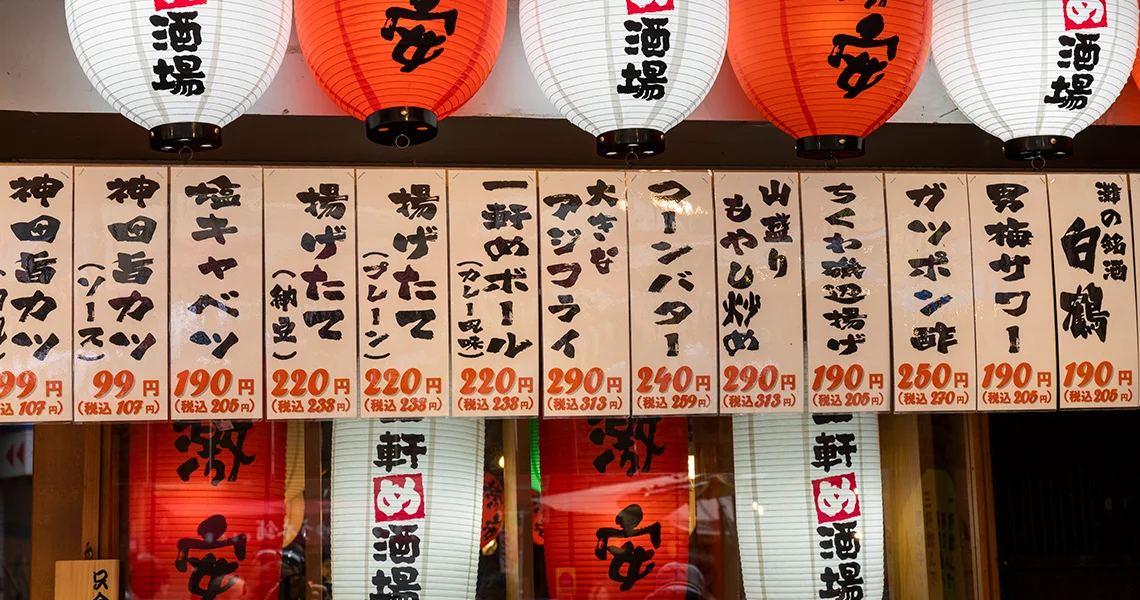 め
酒場
安
め
酒場
安
め
酒場
灘の銘酒
白鶴
190円
(税込 205円)
男梅サワー
190円
(税込 205円)
ガツポン酢
250円
(税込 270円)
ちくわ磯辺揚げ
190円
(税込 205円)
山盛り
もやし炒め
290円
(税込 313円)
コーンバター
240円
(税込 259円)
大きな
アジフライ
290円
(税込 313円)
一軒めボール
(カレー風味)
220円
(税込 238円)
揚げたて
(プレーン)
220円
(税込 238円)
揚げたて
(納豆)
220円
(税込 238円)
塩キャベツ
190円
(税込 205円)
神田旨カツ
(ソース)
99円
(税込 107円)
神田旨カツ
99円
税込 107円)
激安
軒め酒場
激安
一軒め酒場